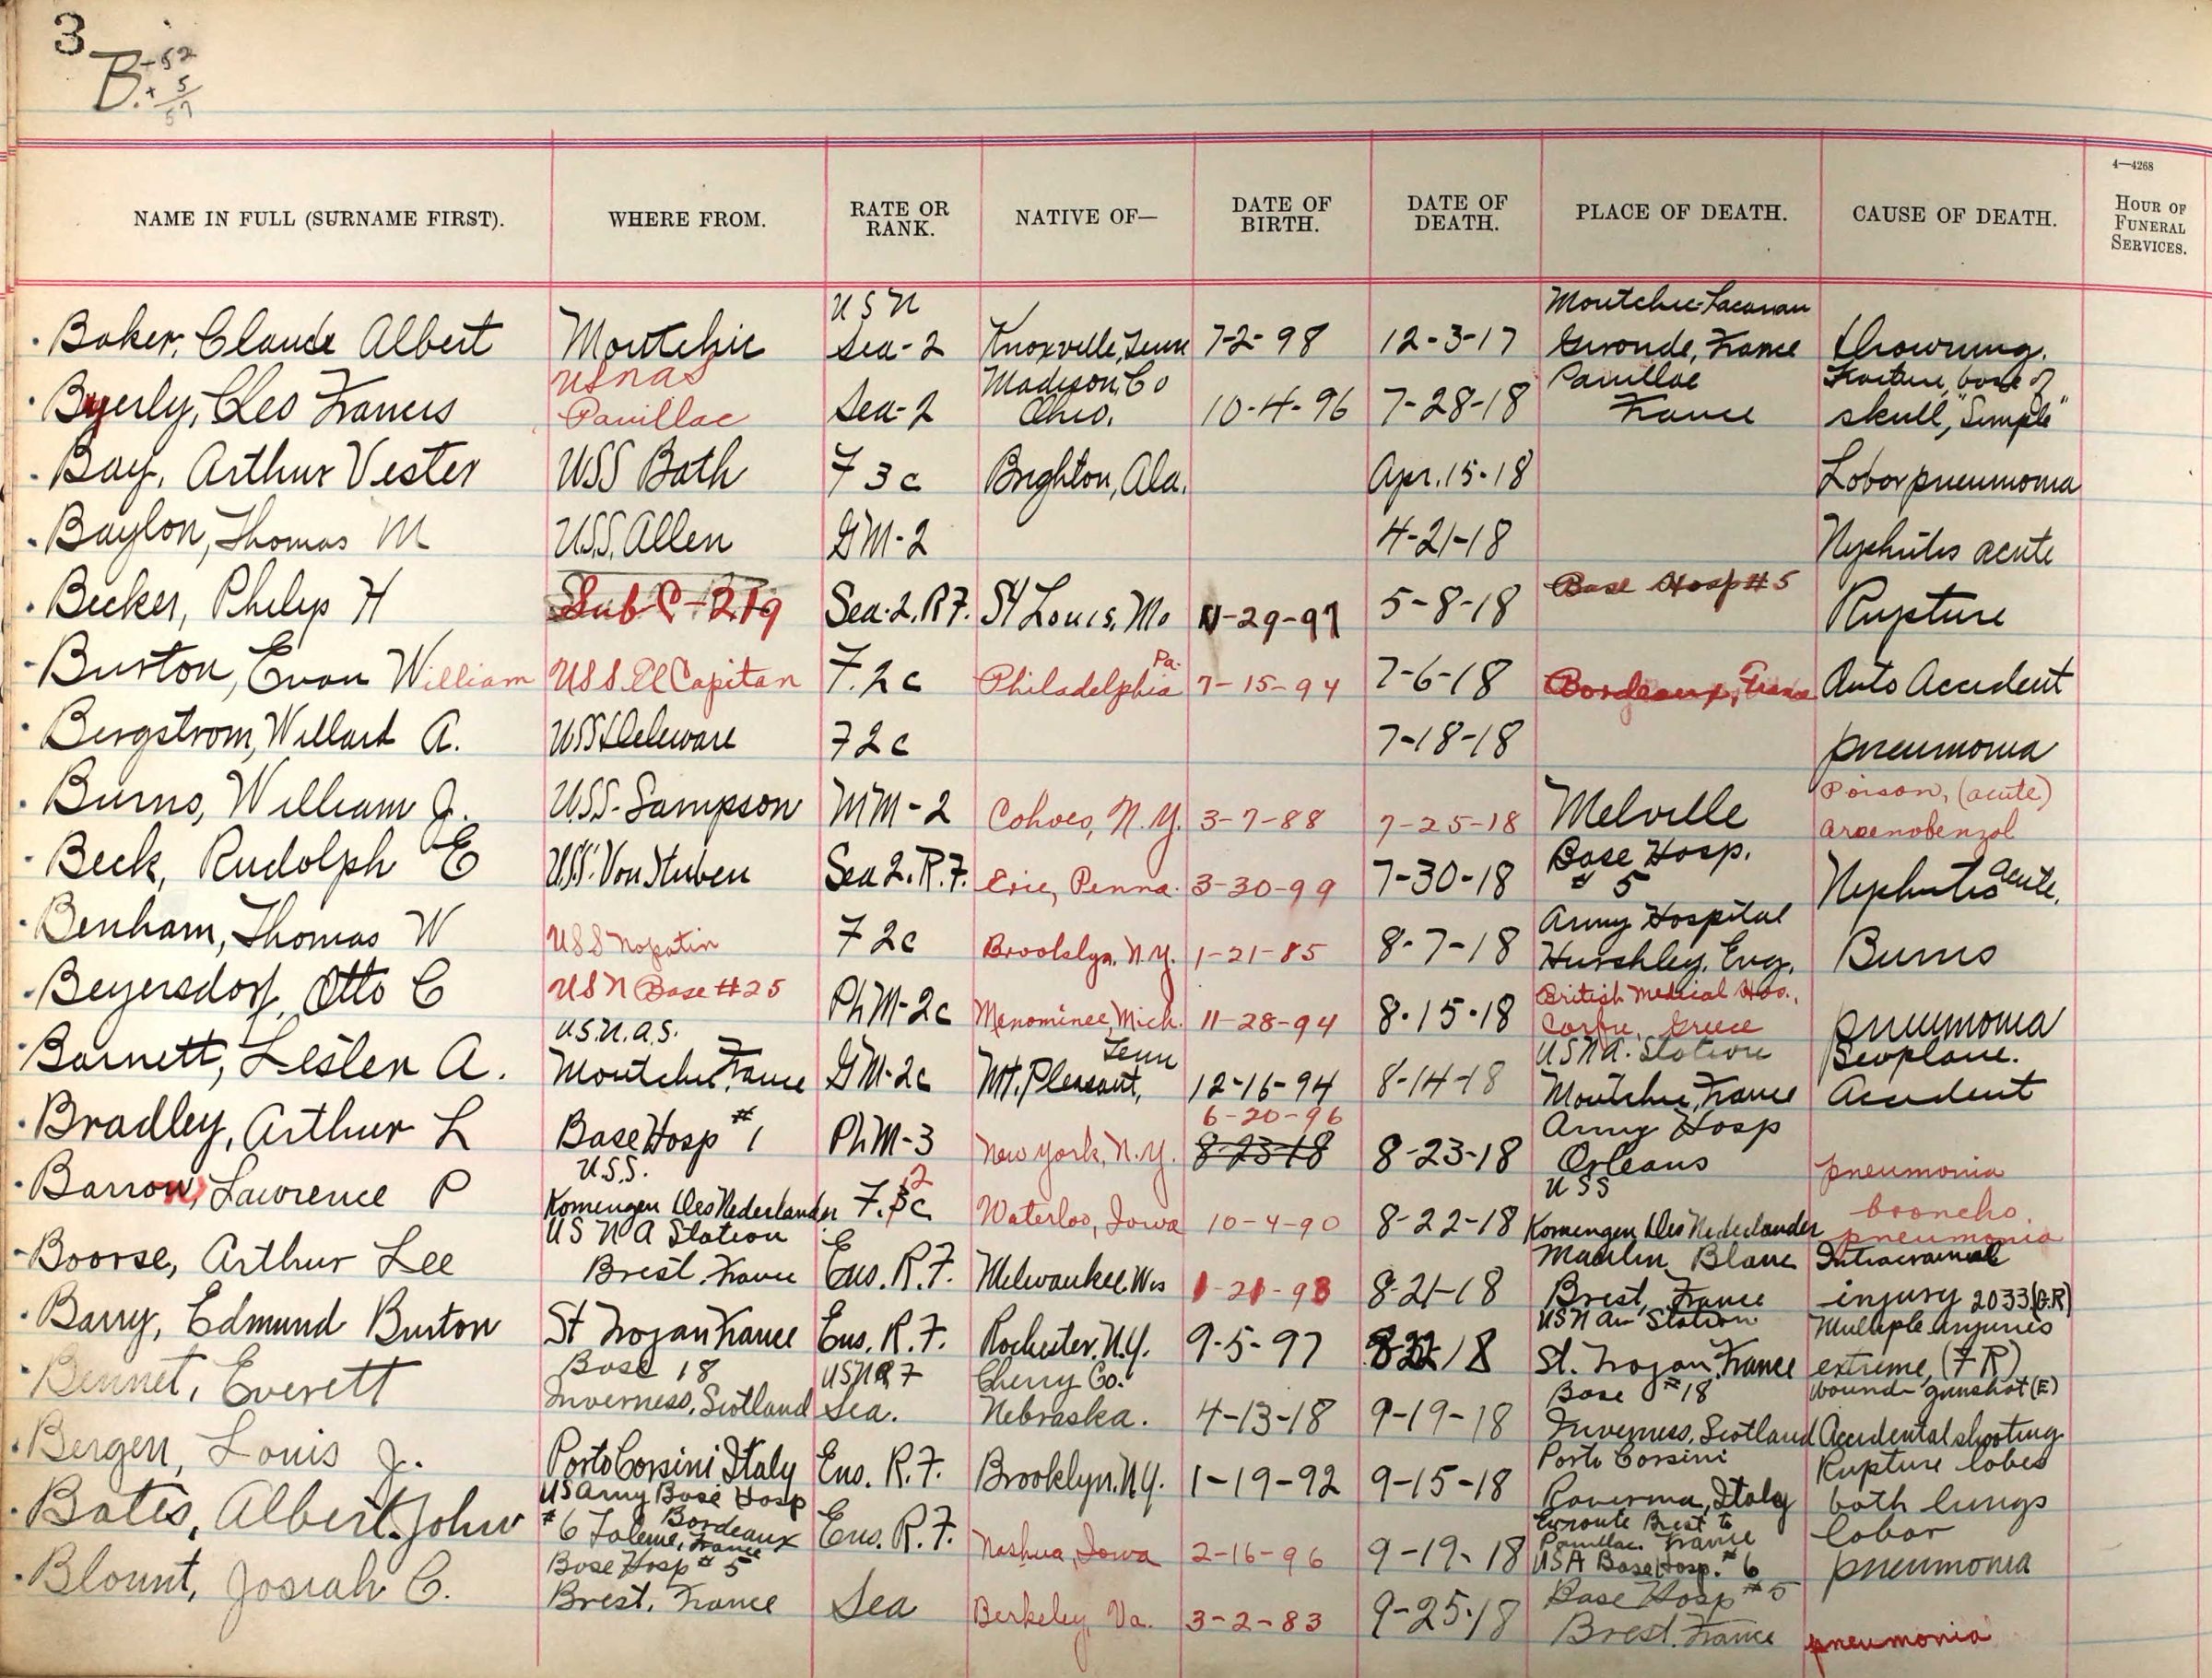 3
B. + 52
+ 5
57
4—4268
NAME IN FULL (SURNAME FIRST). WHERE FROM. RATE OR RANK. NATIVE OF— DATE OF BIRTH. DATE OF DEATH. PLACE OF DEATH. CAUSE OF DEATH. HOUR OF FUNERAL SERVICES.
Baker, Claude Albert Moutchic USN Sea-2 Knoxville, Tenn 7-2-98 12-3-17 Moutchic-Lacanau Gironde, France Drowning.
Byerly, Cleo Francis USNAS Pauillac Sea-2 Madison, Co Ohio. 10-4-96 7-28-18 Pauillac France Fracture, base of skull, "Simple"
Bay, Arthur Vester USS Bath F 3c Brighton, Ala. Apr. 15-18 Lobar pneumonia
Baylon, Thomas M U.S.S. Allen GM-2 4-21-18 Nephritis acute
Becker, Philip H Sub C-219 Sea-2. R.F. St Louis, Mo 11-29-97 5-8-18 Base Hosp #5 Rupture
Burton, Evan William USS. El Capitan F. 2c Philadelphia Pa. 7-15-94 7-6-18 Bordeaux, France Auto Accident
Bergstrom, Willard A. USS Deleware F 2c 7-18-18 pneumonia
Burns, William J. U.S.S. Sampson MM-2 Cohoes, N.Y. 3-7-88 7-25-18 Melville Poison, (acute) arsenobenzol
Beck, Rudolph E U.S.S. Von Stuben Sea 2. R.F. Erie, Penna. 3-30-99 7-30-18 Base Hosp. # 5 Nephritis acute.
Benham, Thomas W USS Nopatin F 2c Brooklyn, N.Y. 1-21-85 8-7-18 Army Hospital Hurshley, Eng. Burns
Beyersdorf, Otto C USN Base #25 PhM-2c Menominee, Mich. 11-28-94 8-15-18 British Medical Hos., Corfu, Greece pneumonia
Barnett, Leslen A. U.S.N.A.S. Moutchic France GM-2c Mt. Pleasant, Tenn 12-16-94 8-14-18 USNA. Station Moutchic, France Seaplane. Accident
Bradley, Arthur L Base Hosp # 1 PhM-3 New York, N.Y. 6-20-96 8-23-18 8-23-18 Army Hosp Orleans pneumonia
Barrow, Lawrence P U.S.S. Komengen Des Nederlanden F. 2c Waterloo, Iowa 10-4-90 8-22-18 USS Komengen Des Nederlander broncho. pneumonia
Boorse, Arthur Lee USNA Station Brest, France Ens. R.F. Milwaukee, Wis 1-21-93 8-21-18 Maulin Blanc Brest, France Intracranial injury 2033 (G.R)
Barry, Edmund Burton St Trojan France Ens. R.F. Rochester, N.Y. 9-5-97 8-22-18 USN Air Station St. Trojan, France Multiple injuries extreme, (FR)
Bennet, Everett Base 18 Inverness, Scotland USNRF Sea. Cherry Co. Nebraska. 4-13-18 9-19-18 Base #18 Inverness, Scotland wound-gunshot (E) Accidental shooting
Bergen, Louis J. Porto Corsini Italy Ens. R.F. Brooklyn, N.Y. 1-19-92 9-15-18 Porto Corsini Raverma, Italy Rupture lobes both lungs
Bates, Albert John US Army Base Hosp # 6 Talence, Bordeaux France Ens. R.F. Nashua, Iowa 2-16-96 9-19-18 Enroute Brest to Pauillac France USA Base Hosp. # 6 lobar pneumonia
Blount, Josiah C. Base Hosp # 5 Brest, France Sea Berkeley, Va. 3-2-83 9-25-18 Base Hosp #5 Brest, France pneumonia